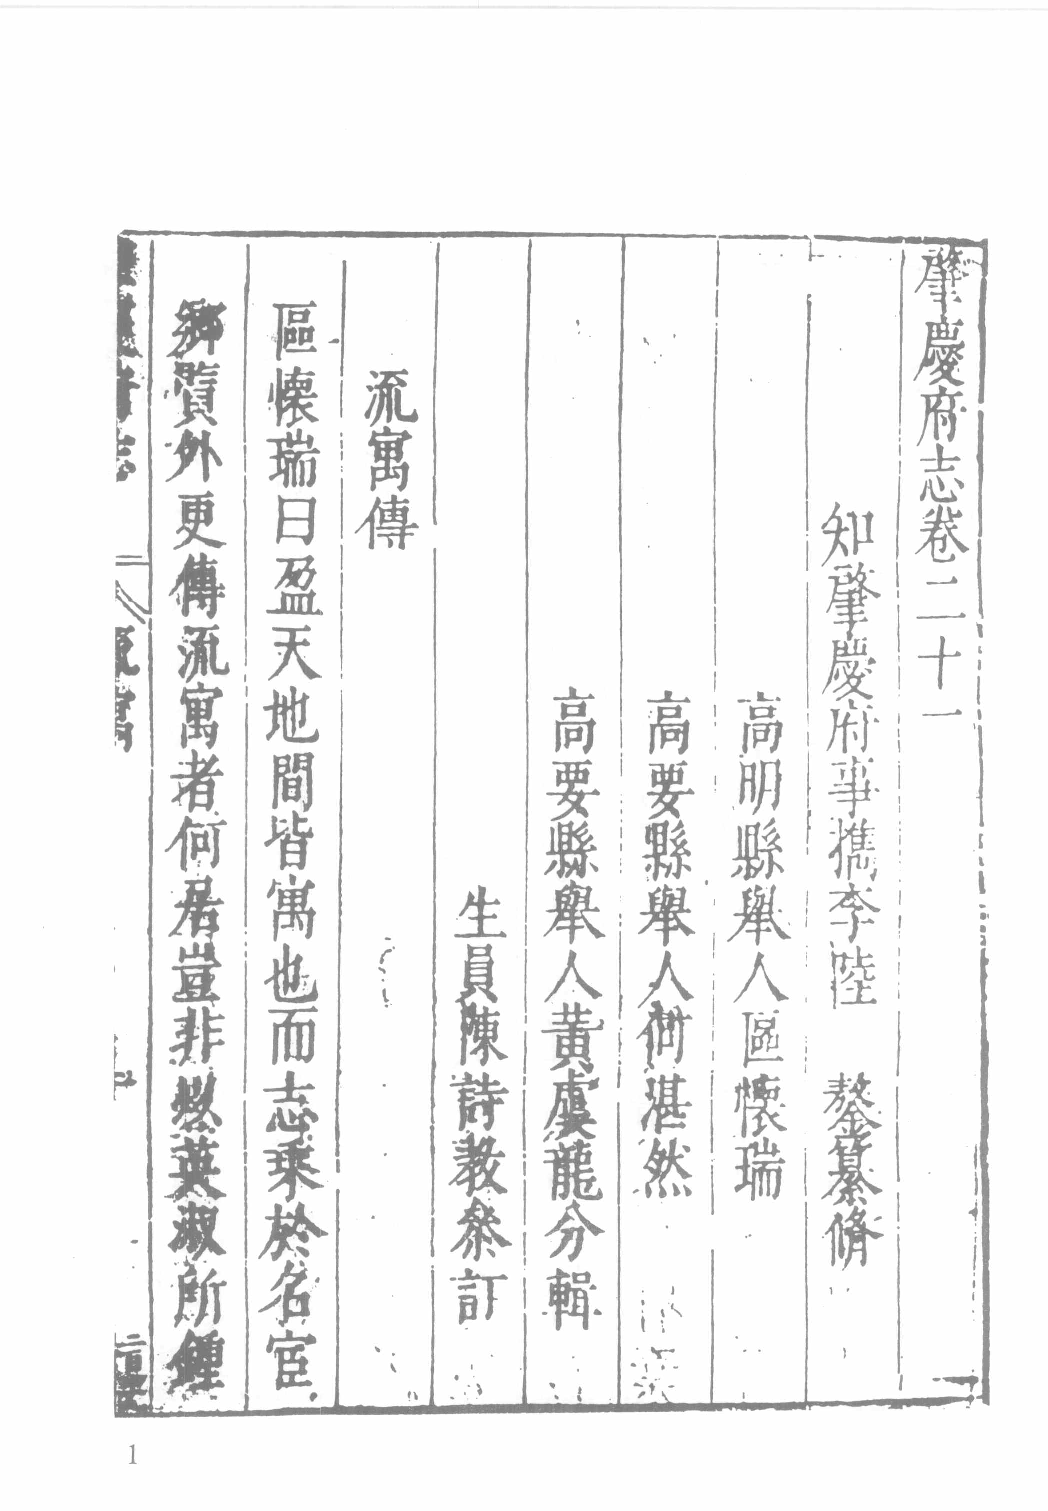 肇慶府志卷二十一
知肇慶府事檇李陸 鏊纂脩
高明縣舉人區懷瑞
高要縣舉人何湛然
高要縣舉人黃虞龍分輯
生員陳詩教叅訂
流寓傳
區懷瑞曰盈天地間皆寓也而志乘於名宦
鄉賢外更傳流寓者何居豈非以英淑所鍾
流寓
1